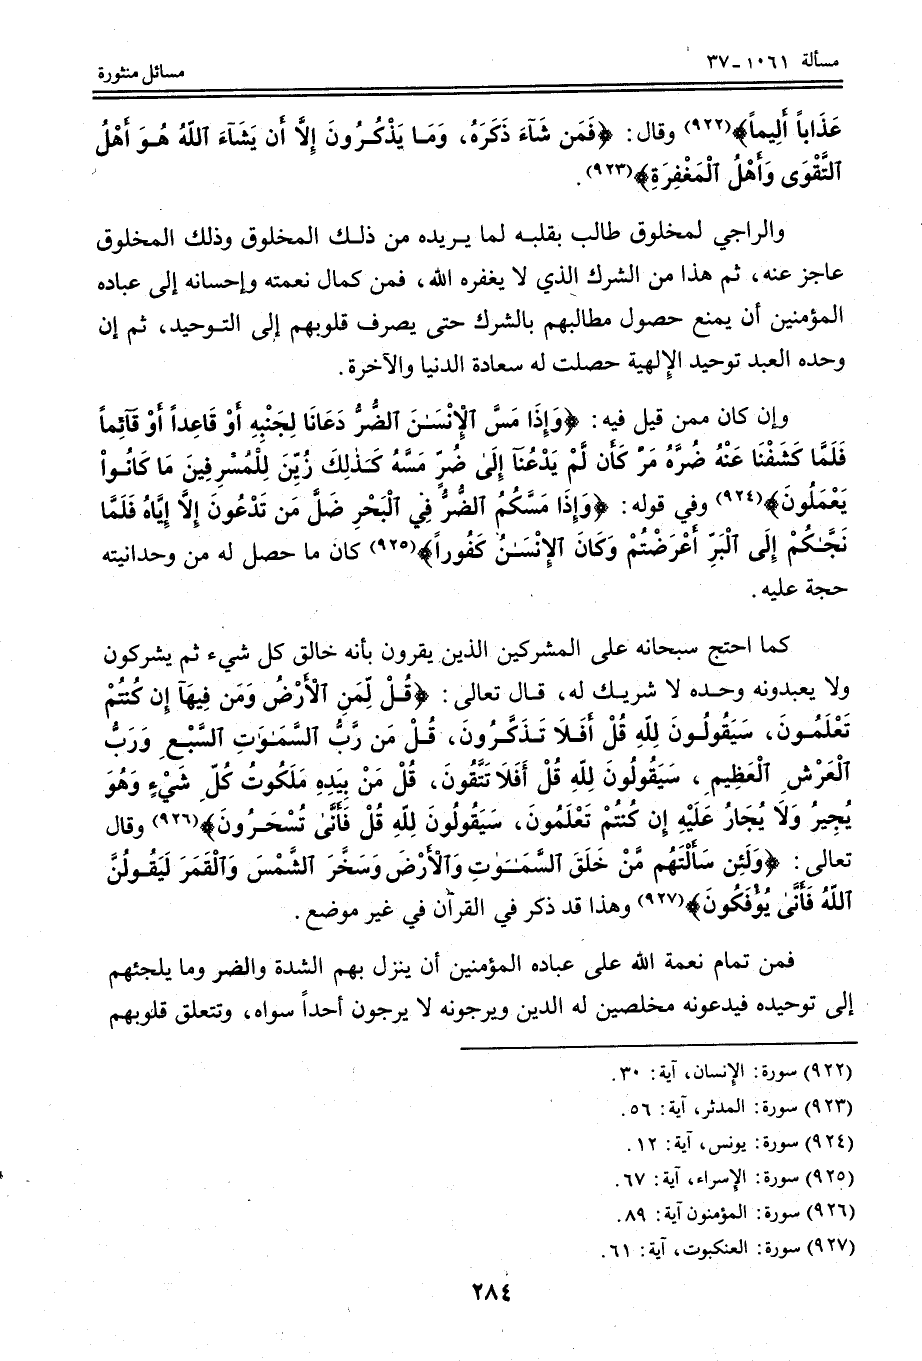 مسألة ١٠٦١ - ٣٧
مسائل منثورة
عَذَاباً أَلِيماً﴾(٩٢٢) وقال: ﴿فَمَن شَآءَ ذَكَرَهُ، وَمَا يَذْكُرُونَ إِلَّا أَن يَشَآءَ ٱللَّهُ هُوَ أَهْلُ
ٱلتَّقْوَى وَأَهْلُ ٱلْمَغْفِرَةِ﴾(٩٢٣).
والراجي لمخلوق طالب بقلبه لما يريده من ذلك المخلوق وذلك المخلوق
عاجز عنه، ثم هذا من الشرك الذي لا يغفره الله، فمن كمال نعمته وإحسانه إلى عباده
المؤمنين أن يمنع حصول مطالبهم بالشرك حتى يصرف قلوبهم إلى التوحيد، ثم إن
وحده العبد توحيد الإلهية حصلت له سعادة الدنيا والآخرة.
وإن كان ممن قيل فيه: ﴿وَإِذَا مَسَّ ٱلْإِنْسَـٰنَ ٱلضُّرُّ دَعَانَا لِجَنْبِهِ أَوْ قَاعِداً أَوْ قَآئِماً
فَلَمَّا كَشَفْنَا عَنْهُ ضُرَّهُ مَرَّ كَأَن لَّمْ يَدْعُنَآ إِلَىٰ ضُرٍّ مَسَّهُ كَذٰلِكَ زُيِّنَ لِلْمُسْرِفِينَ مَا كَانُواْ
يَعْمَلُونَ﴾(٩٢٤) وفي قوله: ﴿وَإِذَا مَسَّكُمُ ٱلضُّرُّ فِي ٱلْبَحْرِ ضَلَّ مَن تَدْعُونَ إِلَّا إِيَّاهُ فَلَمَّا
نَجَّـٰكُمْ إِلَى ٱلْبَرِّ أَعْرَضْتُمْ وَكَانَ ٱلْإِنْسَـٰنُ كَفُوراً﴾(٩٢٥) كان ما حصل له من وحدانيته
حجة عليه.
كما احتج سبحانه على المشركين الذين يقرون بأنه خالق كل شيء ثم يشركون
ولا يعبدونه وحده لا شريك له، قال تعالى: ﴿قُلْ لِّمَنِ ٱلْأَرْضُ وَمَن فِيهَآ إِن كُنتُمْ
تَعْلَمُونَ، سَيَقُولُونَ لِلّهِ قُلْ أَفَلَا تَذَكَّرُونَ، قُلْ مَن رَّبُّ ٱلسَّمَـٰوَٰتِ ٱلسَّبْعِ وَرَبُّ
ٱلْعَرْشِ ٱلْعَظِيمِ، سَيَقُولُونَ لِلّهِ قُلْ أَفَلَا تَتَّقُونَ، قُلْ مَنْ بِيَدِهِ مَلَكُوتُ كُلِّ شَيْءٍ وَهُوَ
يُجِيرُ وَلَا يُجَارُ عَلَيْهِ إِن كُنتُمْ تَعْلَمُونَ، سَيَقُولُونَ لِلّهِ قُلْ فَأَنَّىٰ تُسْحَرُونَ﴾(٩٢٦) وقال
تعالى: ﴿وَلَئِن سَأَلْتَهُم مَّنْ خَلَقَ ٱلسَّمَـٰوَٰتِ وَٱلْأَرْضَ وَسَخَّرَ ٱلشَّمْسَ وَٱلْقَمَرَ لَيَقُولُنَّ
ٱللَّهُ فَأَنَّىٰ يُؤْفَكُونَ﴾(٩٢٧) وهذا قد ذكر في القرآن في غير موضع.
فمن تمام نعمة الله على عباده المؤمنين أن ينزل بهم الشدة والضر وما يلجئهم
إلى توحيده فيدعونه مخلصين له الدين ويرجونه لا يرجون أحداً سواه، وتتعلق قلوبهم
(٩٢٢) سورة: الإنسان، آية: ٣٠.
(٩٢٣) سورة: المدثر، آية: ٥٦.
(٩٢٤) سورة: يونس، آية: ١٢.
(٩٢٥) سورة: الإسراء، آية: ٦٧.
(٩٢٦) سورة: المؤمنون آية: ٨٩.
(٩٢٧) سورة: العنكبوت، آية: ٦١.
٢٨٤